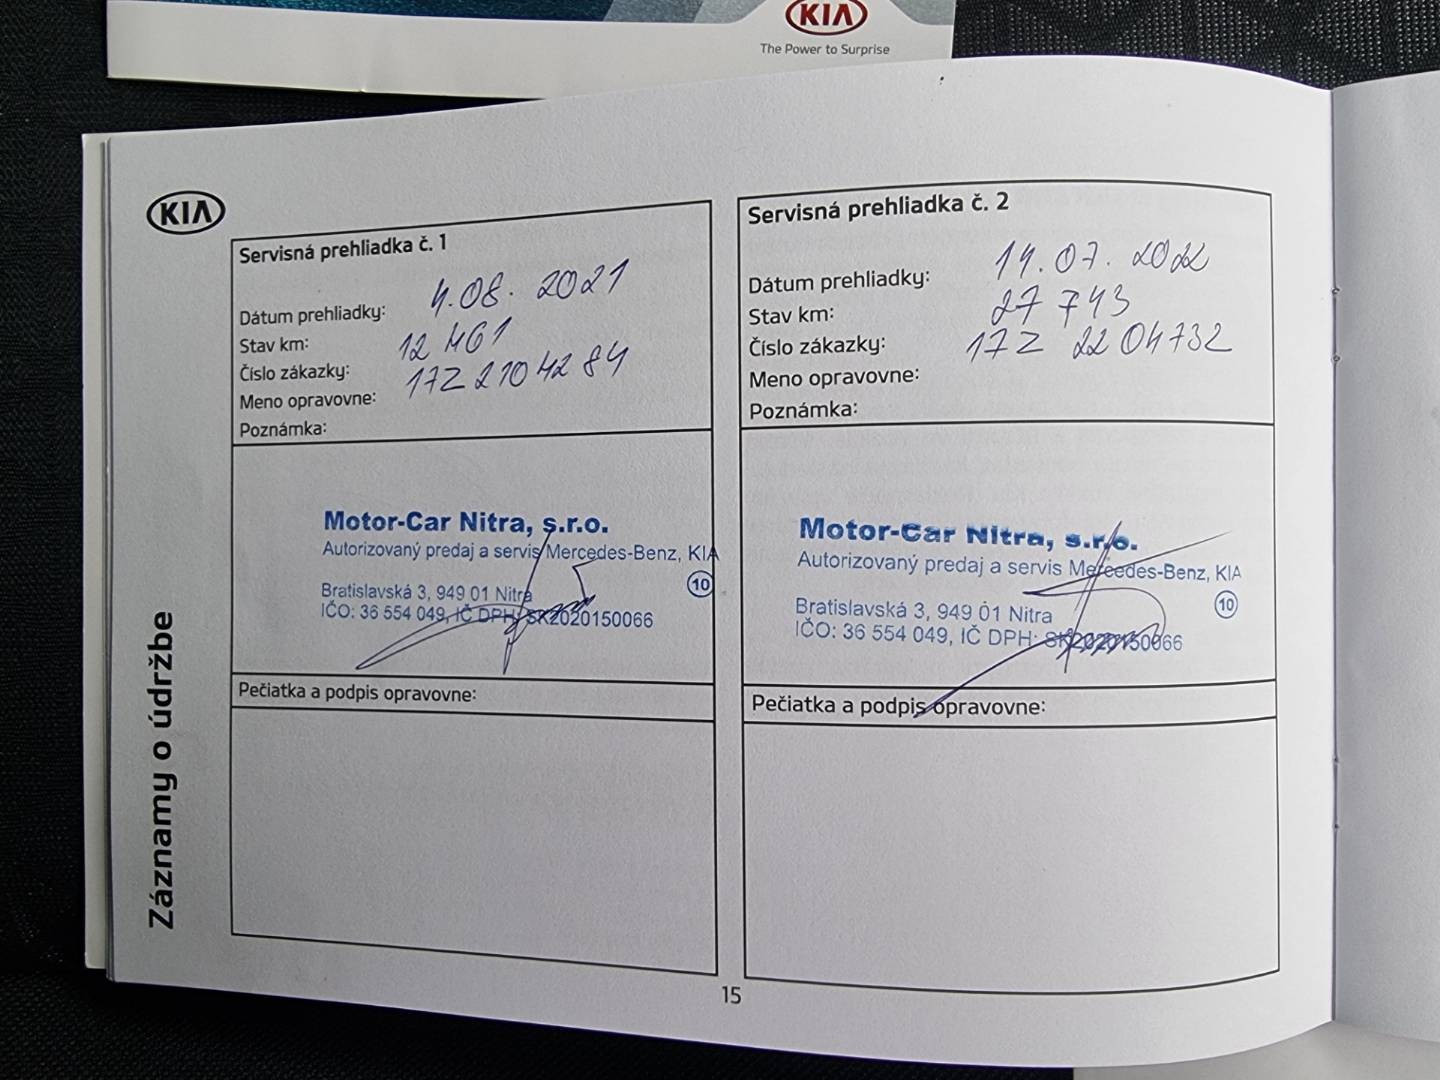 KIA
The Power to Surprise
KIA
Záznamy o údržbe
Servisná prehliadka č. 1
Dátum prehliadky: 4.08. 2021
Stav km: 12 461
Číslo zákazky: 17Z 210 42 84
Meno opravovne:
Poznámka:
Motor-Car Nitra, s.r.o.
Autorizovaný predaj a servis Mercedes-Benz, KIA
10
Bratislavská 3, 949 01 Nitra
IČO: 36 554 049, IČ DPH: SK2020150066
Pečiatka a podpis opravovne:
Servisná prehliadka č. 2
Dátum prehliadky: 14.07. 2022
Stav km: 27 743
Číslo zákazky: 17Z 2204732
Meno opravovne:
Poznámka:
Motor-Car Nitra, s.r.o.
Autorizovaný predaj a servis Mercedes-Benz, KIA
10
Bratislavská 3, 949 01 Nitra
IČO: 36 554 049, IČ DPH: SK2020150066
Pečiatka a podpis opravovne:
15